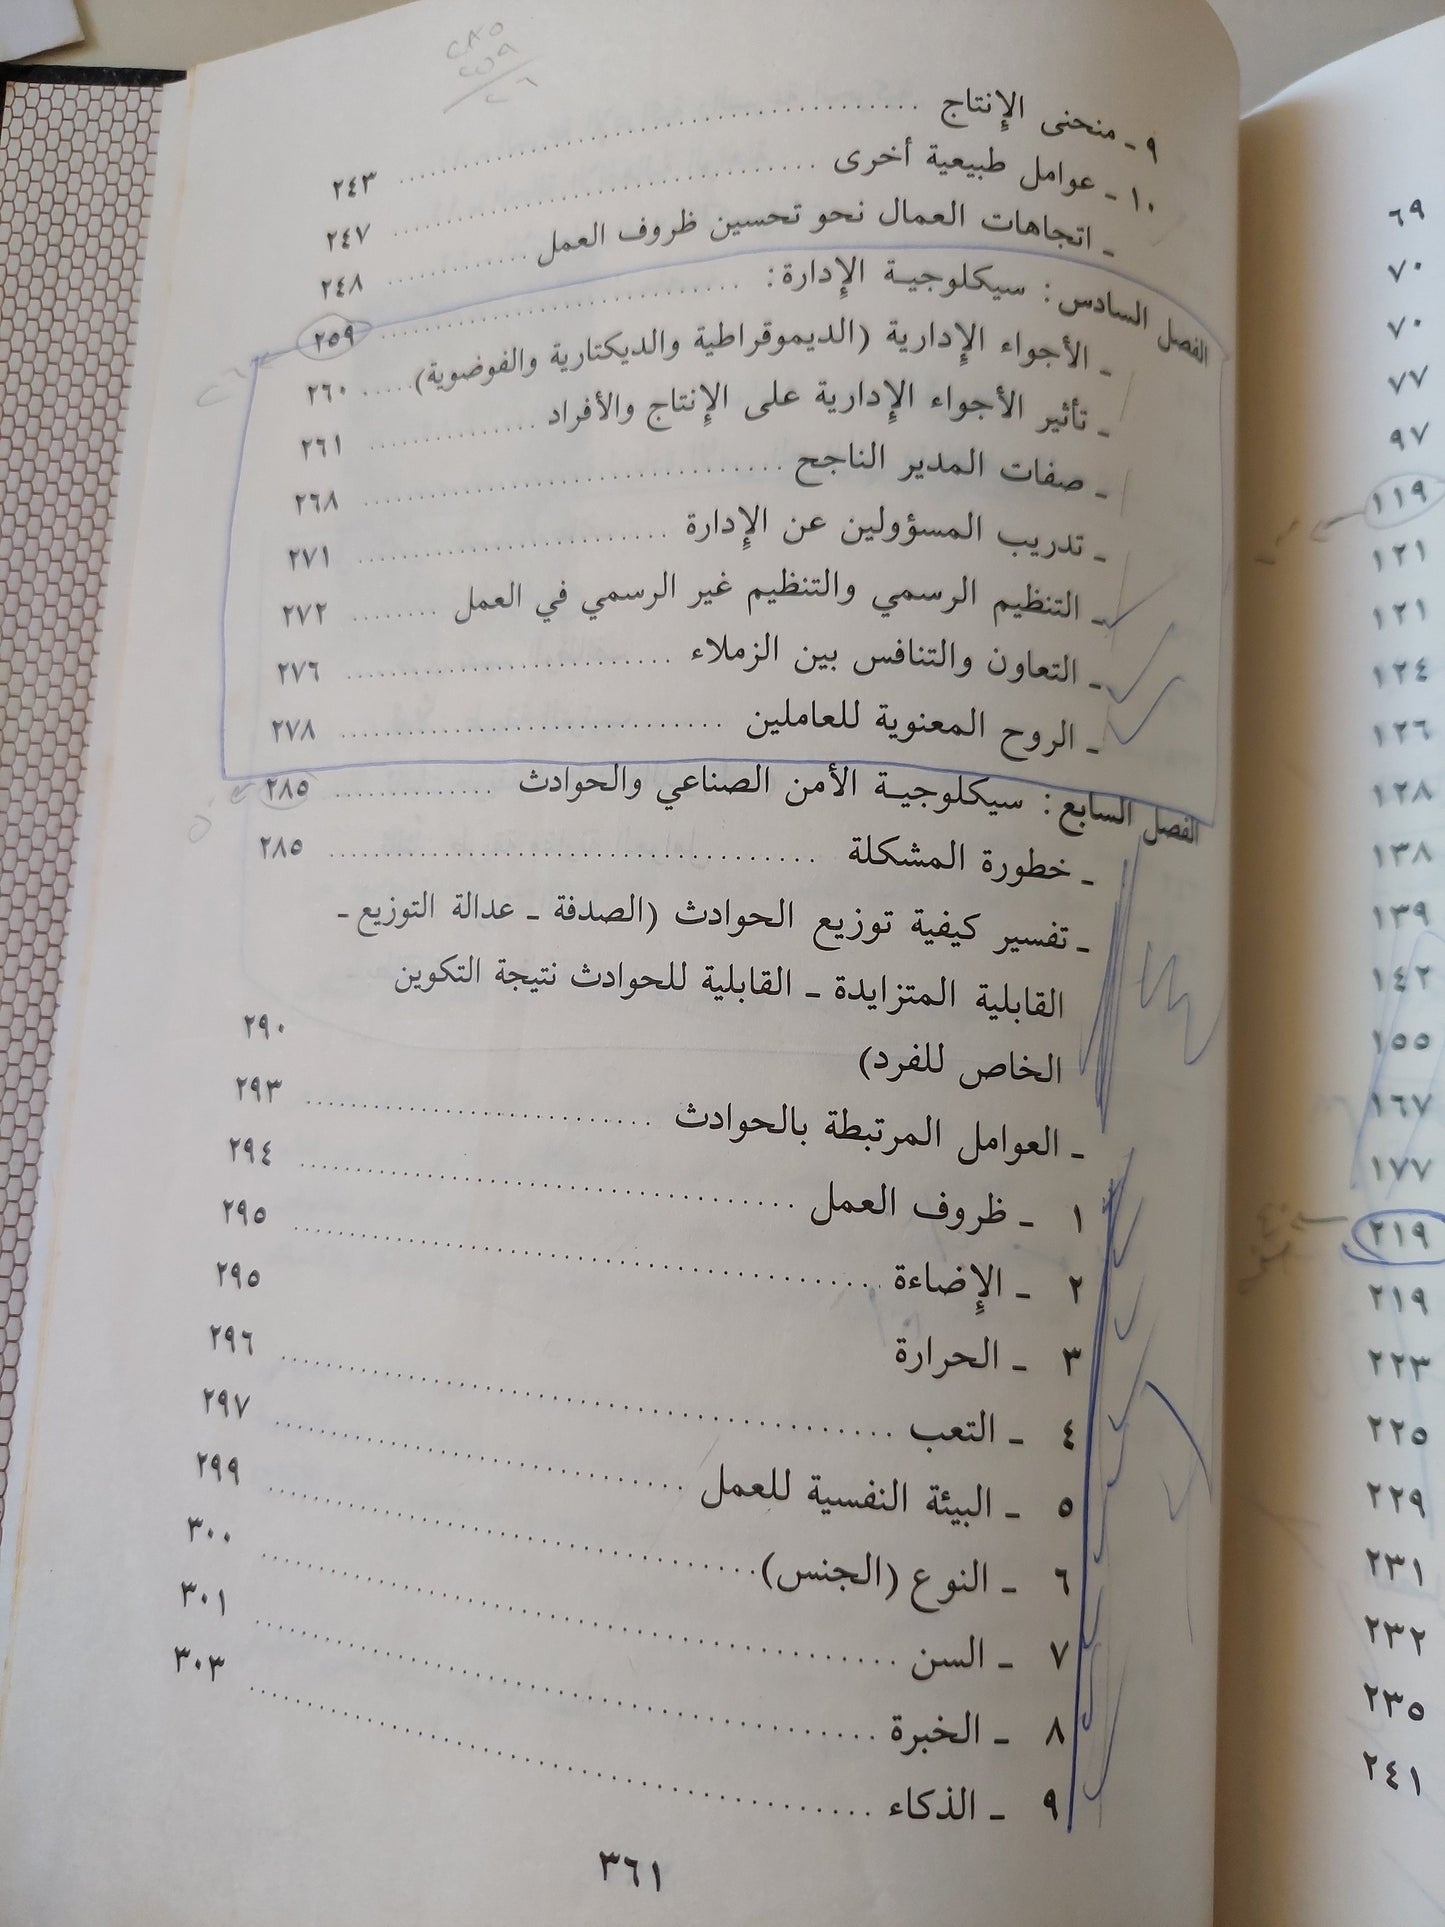 ٩ ـ منحنى الإنتاج ........ ٢٤٣
١٠ ـ عوامل طبيعية أخرى ........ ٢٤٧
ـ اتجاهات العمال نحو تحسين ظروف العمل ........ ٢٤٨
الفصل السادس: سيكلوجية الإدارة: ........ ٢٥٩
ـ الأجواء الإدارية (الديموقراطية والديكتارية والفوضوية) ..... ٢٦٠
ـ تأثير الأجواء الإدارية على الإنتاج والأفراد ........ ٢٦١
ـ صفات المدير الناجح ........ ٢٦٨
ـ تدريب المسؤولين عن الإدارة ........ ٢٧١
ـ التنظيم الرسمي والتنظيم غير الرسمي في العمل ........ ٢٧٢
ـ التعاون والتنافس بين الزملاء ........ ٢٧٦
ـ الروح المعنوية للعاملين ........ ٢٧٨
الفصل السابع: سيكلوجية الأمن الصناعي والحوادث ........ ٢٨٥
ـ خطورة المشكلة ........ ٢٨٥
ـ تفسير كيفية توزيع الحوادث (الصدفة ـ عدالة التوزيع ـ
القابلية المتزايدة ـ القابلية للحوادث نتيجة التكوين
الخاص للفرد) ٢٩٠
ـ العوامل المرتبطة بالحوادث ........ ٢٩٣
١ ـ ظروف العمل ........ ٢٩٤
٢ ـ الإضاءة ........ ٢٩٥
٣ ـ الحرارة ٢٩٥
٤ ـ التعب ........ ٢٩٦
٥ ـ البيئة النفسية للعمل ........ ٢٩٧
٦ ـ النوع (الجنس) ........ ٢٩٩
٧ ـ السن ........ ٣٠٠
٨ ـ الخبرة ........ ٣٠١
٩ ـ الذكاء ........ ٣٠٣
٣٦١
٦٩
٧٠
٧٠
٧٧
٩٧
١١٩
١٢١
١٢١
١٢٤
١٢٦
١٢٨
١٣٨
١٣٩
١٤٢
١٥٥
١٦٧
١٧٧
٢١٩
٢١٩
٢٢٣
٢٢٥
٢٢٩
٢٣١
٢٣٢
٢٣٥
٢٤١